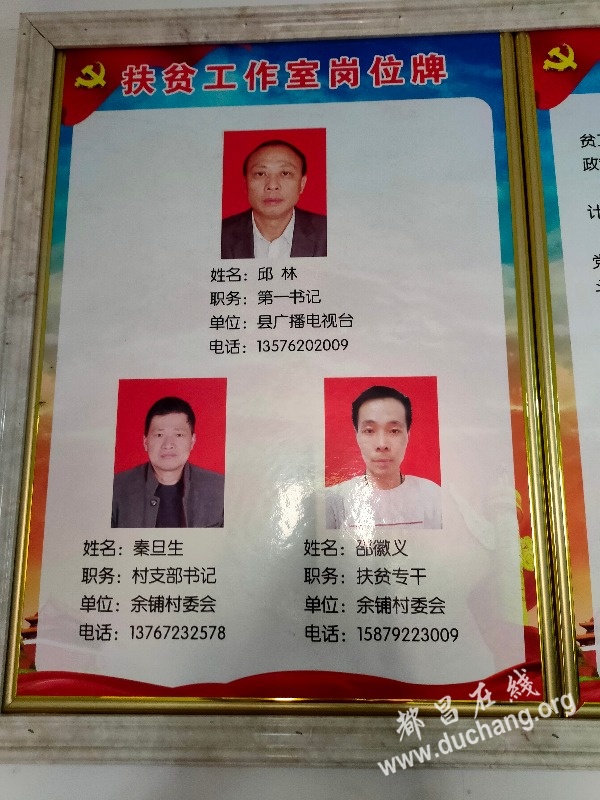 扶贫工作室岗位牌
姓名：邱 林
职务：第一书记
单位：县广播电视台
电话：13576202009
姓名：秦旦生
职务：村支部书记
单位：余铺村委会
电话：13767232578
姓名：邵徽义
职务：扶贫专干
单位：余铺村委会
电话：15879223009
贫
政
计
党
都昌在线
www.duchang.org